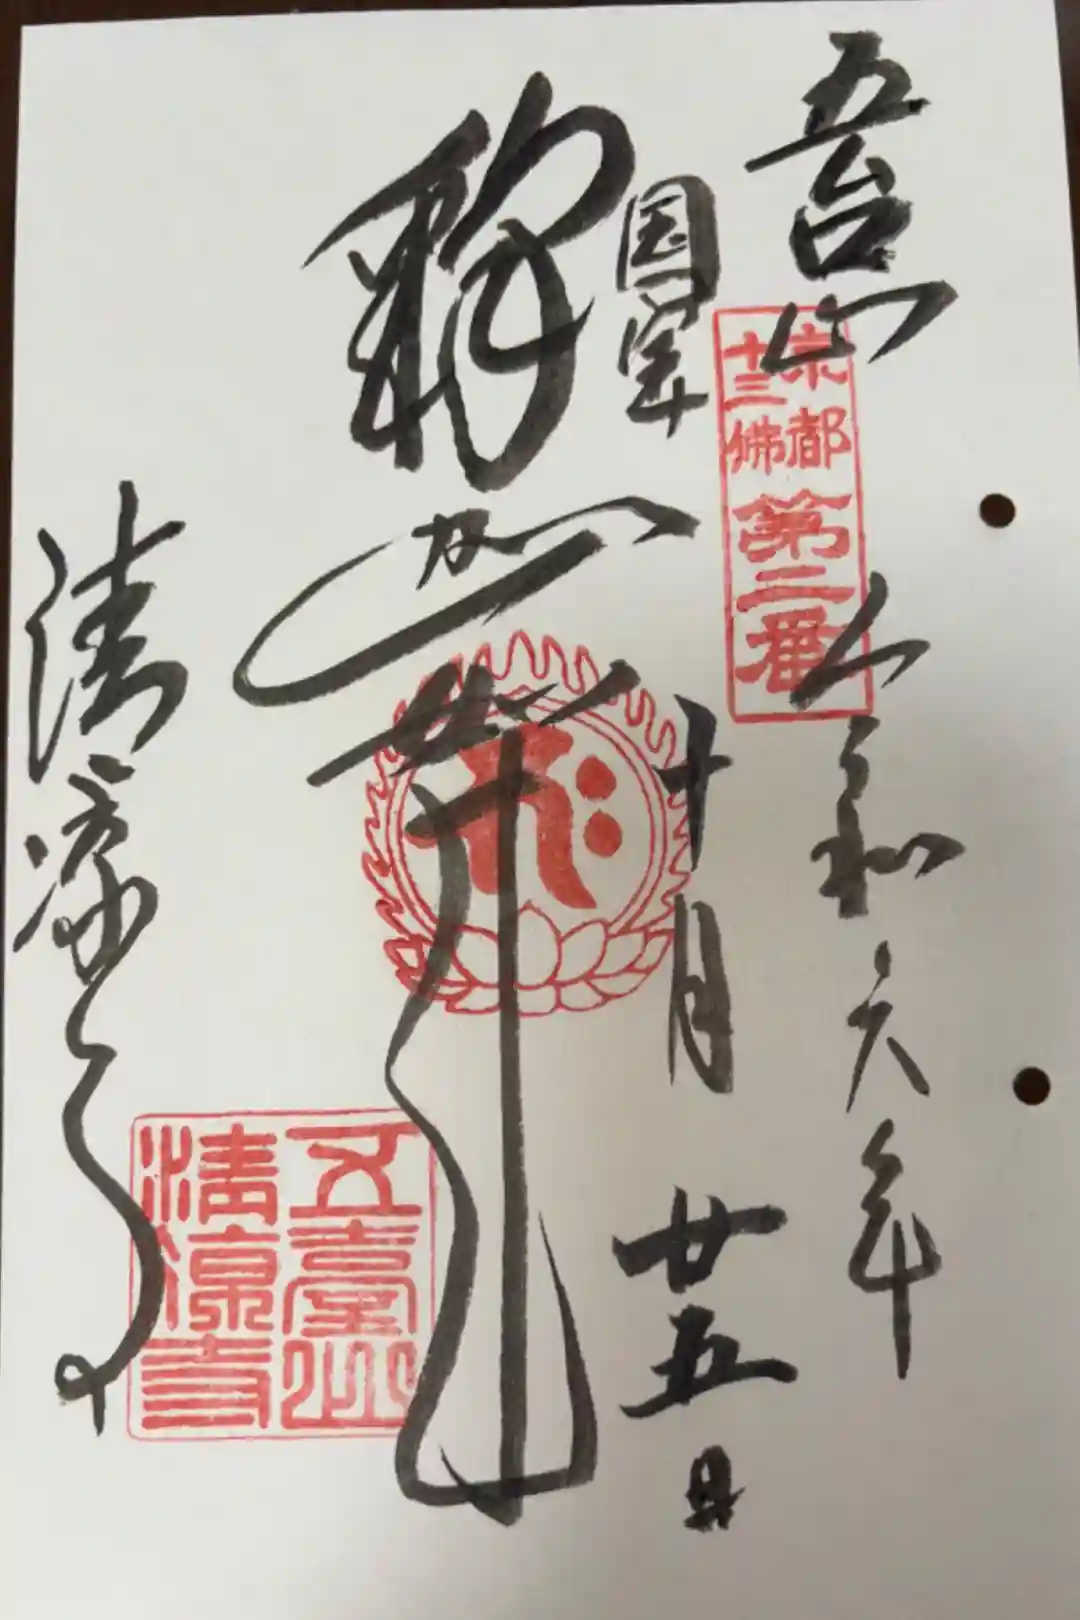 五台山
令和六年
京都
十三佛
第二番
国宝
十月
廿五日
釈迦如来
清凉寺
五臺山
清涼寺